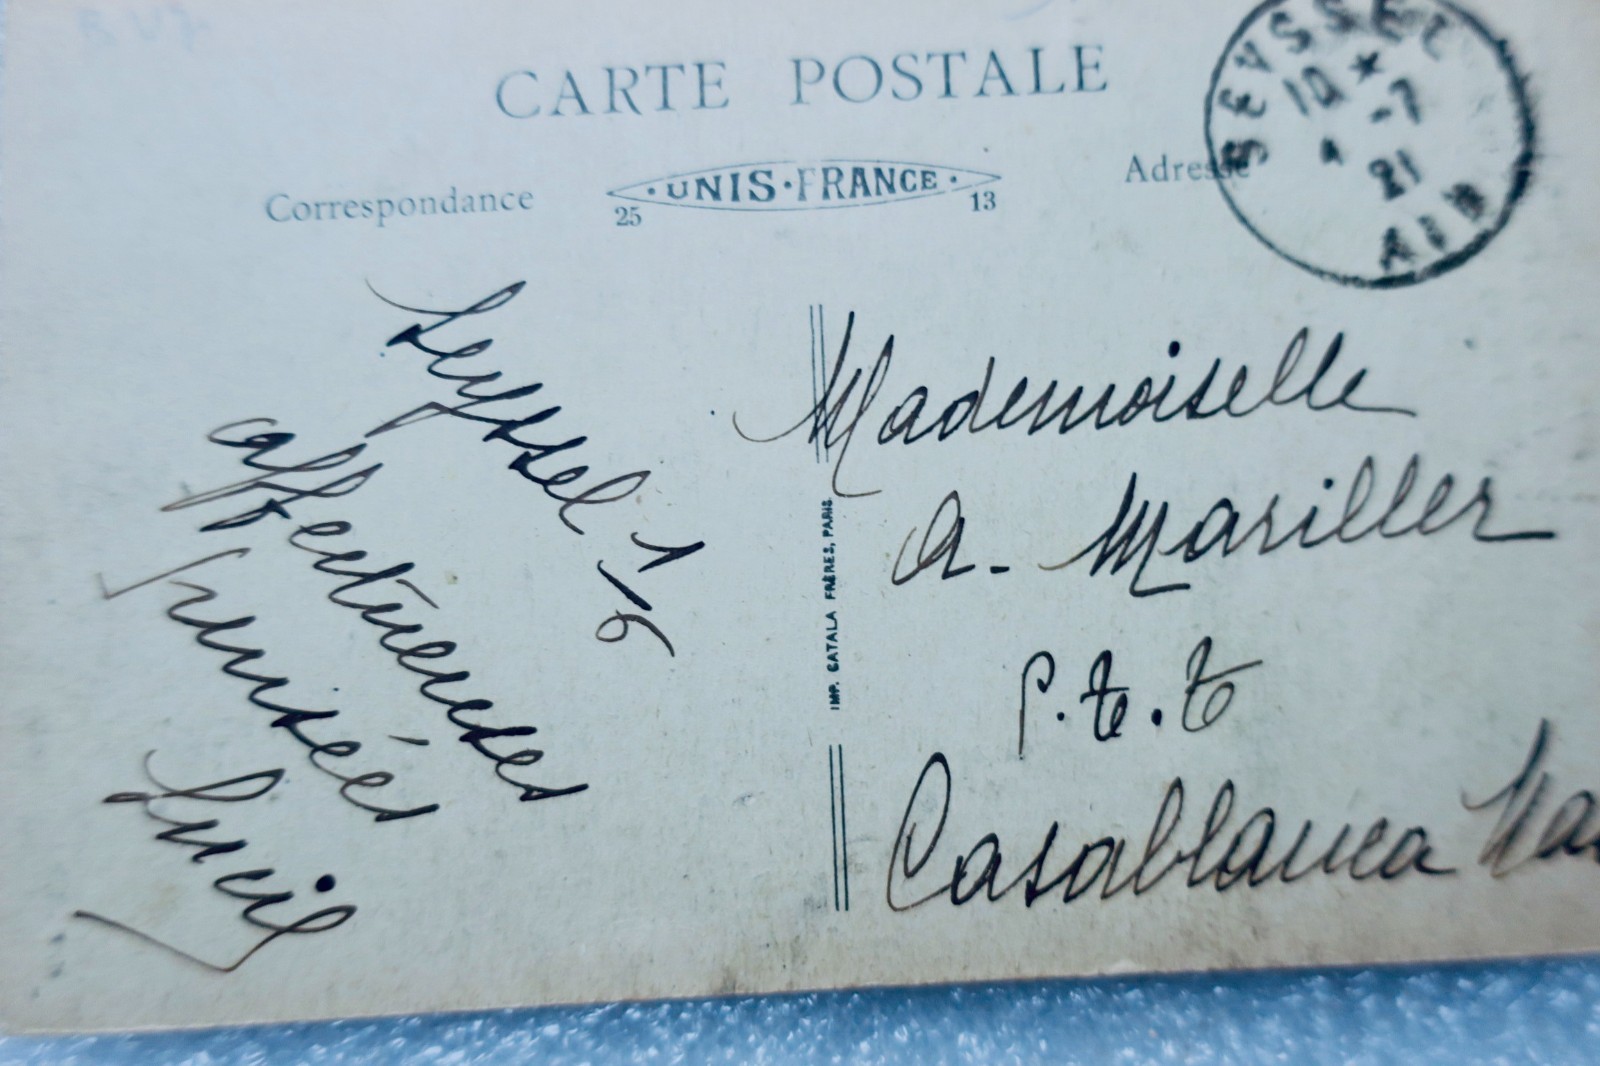 CARTE POSTALE
Correspondance
UNIS·FRANCE
25 13
Adresse
SEYSSEL
10 * -7
21
AIN
Seyssel 1/6
affectueuses
pensées
Mademoiselle
A. Mariller
P.t.t
Casablanca
IMP. CATALA FRÈRES, PARIS